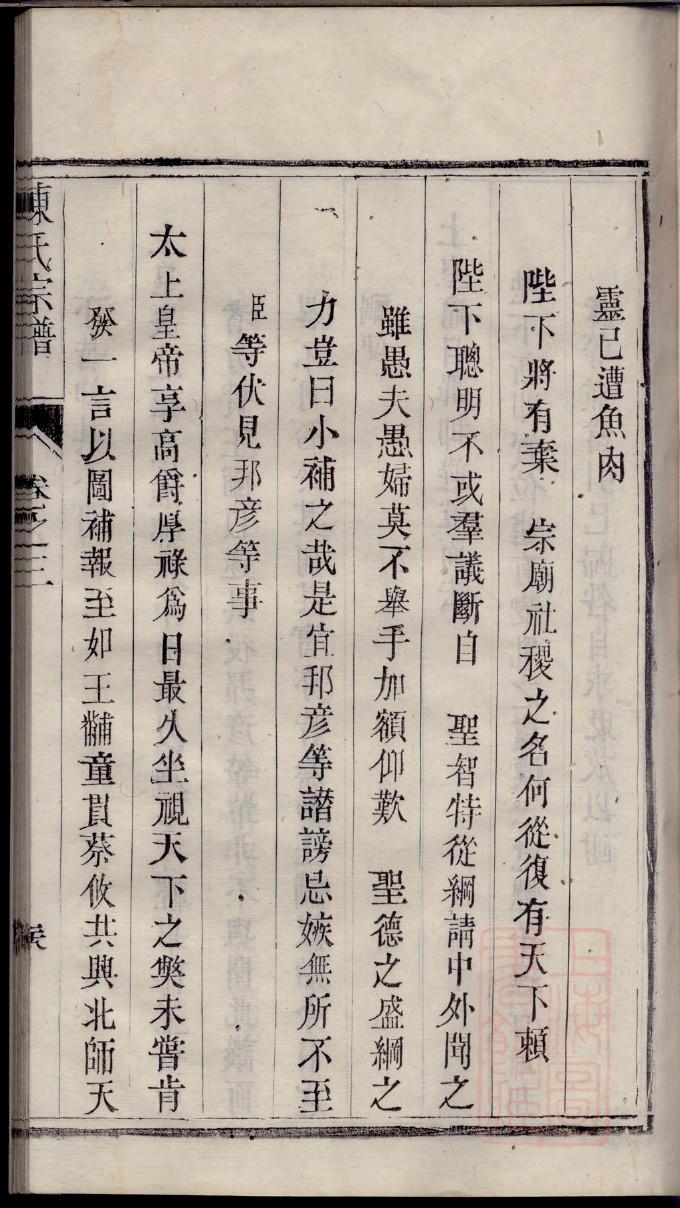 靈已遭魚肉
陛下將有棄 宗廟社稷之名何從復有天下頼
陛下聰明不或羣議斷自 聖智特從綱請中外聞之
雖愚夫愚婦莫不舉手加額仰歎 聖德之盛綱之
力豈曰小補之哉是宜邦彦等譖謗忌嫉無所不至
臣等伏見邦彦等事
太上皇帝享高爵厚祿爲日最久坐視天下之獘未嘗肯
發一言以圖補報至如王黼童貫蔡攸共興北師天
陳氏宗譜
卷之三